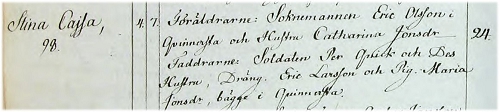 Stina Cajsa, 4. 7. Föräldrarne: Soknemannen Eric Olsson i
98. Qvinnersta och Hustru Catharina Jönsdr 24.
Faddrarne: Soldaten Per Quick och Des
Hustru, Dräng. Eric Larsson och Pig. Maria
Jönsdr, bägge i Qvinnersta.